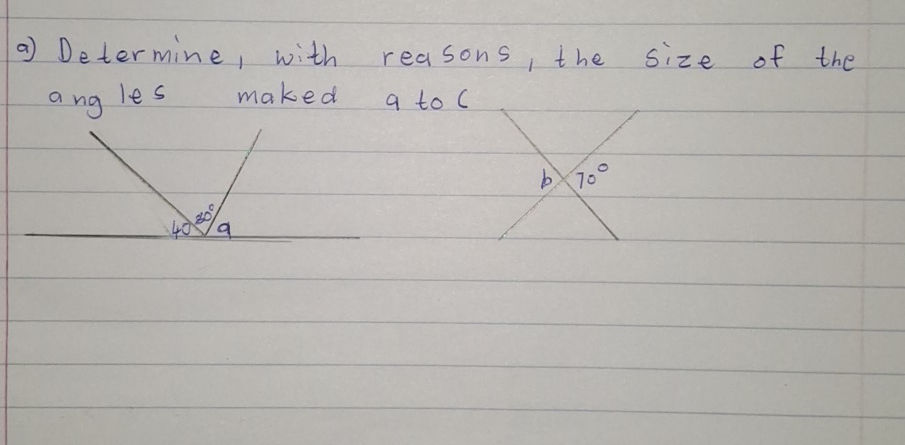 a) Determine, with reasons, the size of the
angles maked a to C
b 70°
40° 80° a